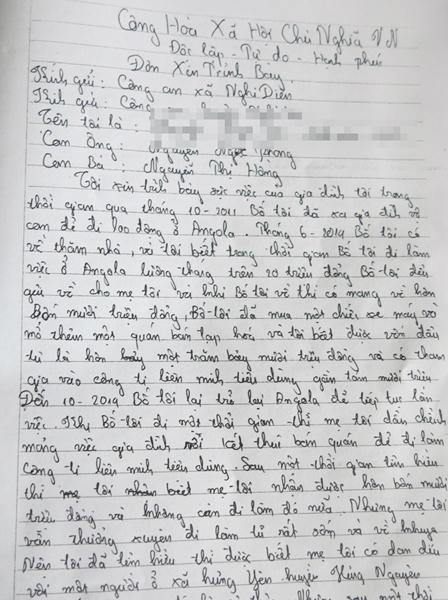 Công Hoà Xã Hôi Chủ Nghĩa V N
Đôc lâp - Tự do - Hạnh phúc
Đơn Xin Trình Bay
Kính gửi: Công an xã Nghi Diên
Kính gửi: Công
Tên tôi là:
Con Ông: Nguyễn Ngọc
Con Bà: Nguyễn Thị Hồng
Tôi xin trình bày sức việc của gia đình tôi trong
thời gian qua tháng 10-2011 Bố tôi đã xa gia đình và
con để đi lao động ở Angola. Tháng 6-2014 Bố tôi có
về thăm nhà, và tôi biết trong thời gian Bố tôi đi làm
việc ở Angola lương tháng trên 20 triệu đồng Bố tôi đều
gửi về cho mẹ tôi và khi Bố tôi về thì có mang về hơn
Bốn mươi triệu đồng, Bố tôi đã mua một chiếc xe máy và
mở thêm một quán bán tạp hoá và tôi biết được vốn đầu
tư là hơn một trăm bảy mươi triệu đồng và có tham
gia vào công ti liên minh tiêu dùng gần tám mươi triệu
Đến 10-2014 Bố tôi lại trở lại Angola để tiếp tục làn
việc. Khi Bố tôi đi một thời gian thì mẹ tôi dần chểnh
mảng việc gia đình rồi kết thúc bán quán để đi làm
công ti liên minh tiêu dùng. Sau một thời gian tìm hiểu
thì tôi biết mẹ tôi nhận được hơn bốn mươi
triệu đồng và không còn đi làm đó nữa. Nhưng mẹ tôi
vẫn thường xuyên đi làm từ rất sớm và về khuya
Nên tôi đã tìm hiểu thì được biết mẹ tôi có dan díu
với một người ở xã hưng Yên huyện Hưng Nguyên